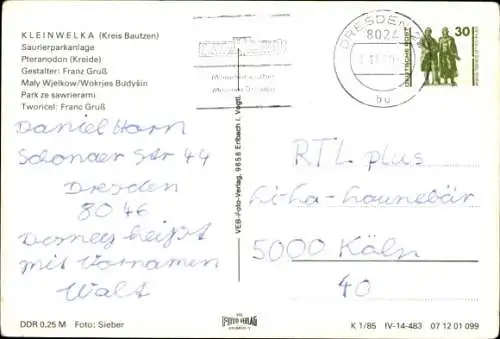 KLEINWELKA (Kreis Bautzen)
Saurierparkanlage
Pteranodon (Kreide)
Gestalter: Franz Gruß
Mały Wjelkow/Wokrjes Budyšin
Park ze sawrierami
Tworićel: Franc Gruß
Daniel Horn
Schonaer Str 44
Dresden
8046
Disney heißt
mit Vornamen
Walt
DDR 0,25 M Foto: Sieber
VEB-Foto-Verlag, 9656 Erlbach i. Vogtl.
FOTO VERLAG
DRESDEN
8024
bu
DEUTSCHE POST
30
RTL plus
hi-ha-haunebär
5000 Köln
40
K 1/85 IV-14-483 07 12 01 099